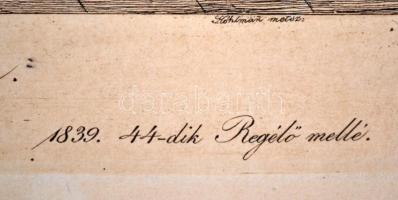 Kohlman metsz:
darabanth
1839. 44-dik Regélő mellé.